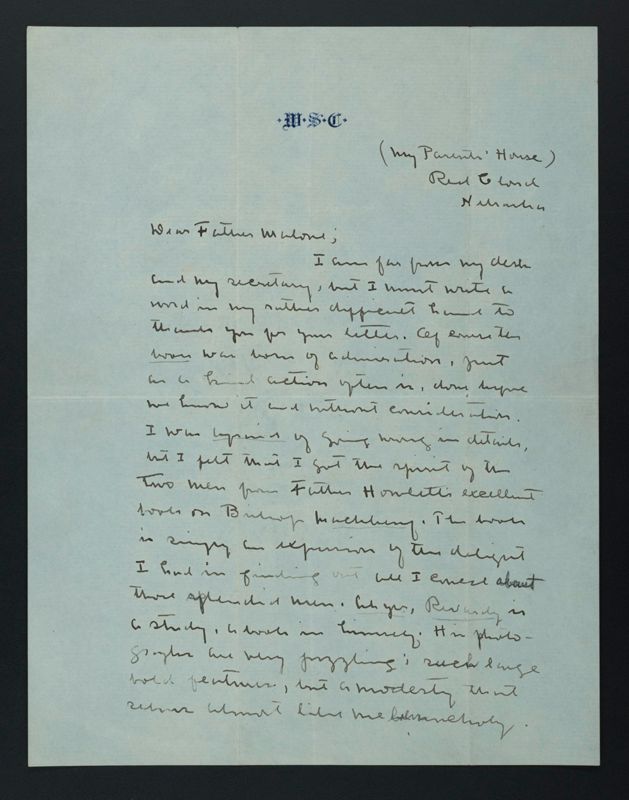 ·W·S·C·
(My Parents' House)
Red Cloud
Nebraska
Dear Father Malone;
I am far from my desk
and my secretary, but I must write a
word in my rather difficult hand to
thank you for your letter. Of course the
book was born of admiration, just
as a kind action often is, done before
we know it and without consideration.
I was afraid of going wrong in details,
but I felt that I got the spirit of the
two men from Father Howlett's excellent
book on Bishop Machebeuf. The book
is simply an expression of the delight
I had in finding out all I could about
those splendid men. Revardy is
a study, a book in himself. His photo-
graphs are very puzzling; such large
bold features, but a modesty that
seems almost like melancholy.